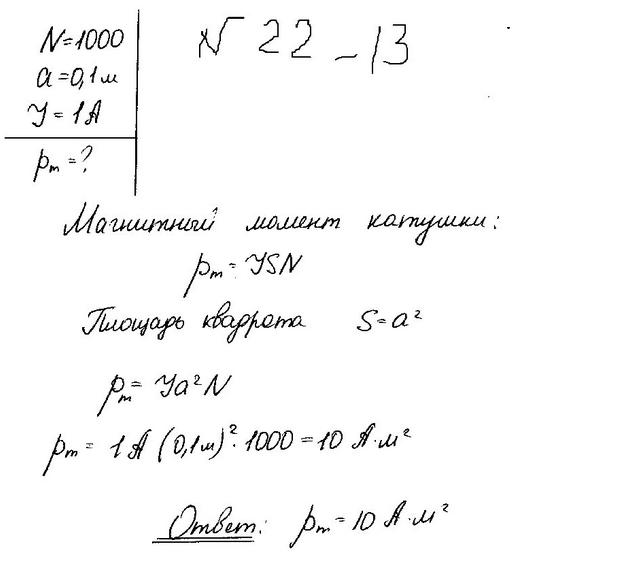 N=1000
a=0,1м
I=1А
pₘ=?
№ 22-13
Магнитный момент катушки:
pₘ=ISN
Площадь квадрата S=a²
pₘ=Ia²N
pₘ= 1А (0,1м)²·1000=10 А·м²
Ответ: pₘ=10 А·м²